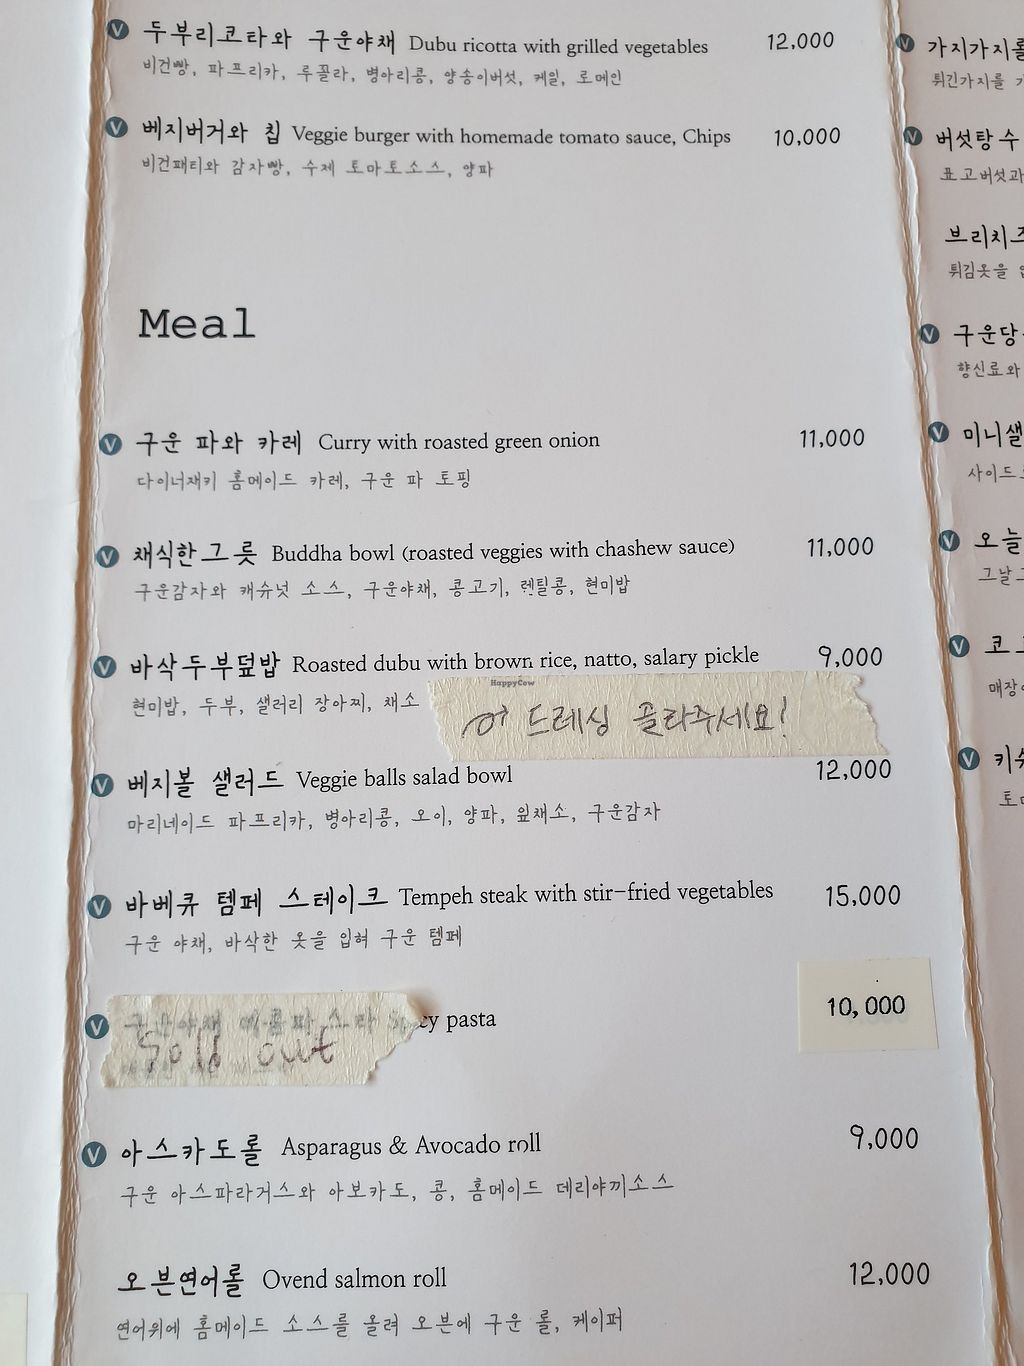 V 두부리코타와 구운야채 Dubu ricotta with grilled vegetables 12,000
비건빵, 파프리카, 루꼴라, 병아리콩, 양송이버섯, 케일, 로메인
V 베지버거와 칩 Veggie burger with homemade tomato sauce, Chips 10,000
비건패티와 감자빵, 수제 토마토소스, 양파
Meal
V 구운 파와 카레 Curry with roasted green onion 11,000
다이너재키 홈메이드 카레, 구운 파 토핑
V 채식한그릇 Buddha bowl (roasted veggies with chashew sauce) 11,000
구운감자와 캐슈넛 소스, 구운야채, 콩고기, 렌틸콩, 현미밥
V 바삭두부덮밥 Roasted dubu with brown rice, natto, salary pickle 9,000
현미밥, 두부, 샐러리 장아찌, 채소
HappyCow
드레싱 골라주세요!
V 베지볼 샐러드 Veggie balls salad bowl 12,000
마리네이드 파프리카, 병아리콩, 오이, 양파, 잎채소, 구운감자
V 바베큐 템페 스테이크 Tempeh steak with stir-fried vegetables 15,000
구운 야채, 바삭한 옷을 입혀 구운 템페
V cy pasta 10,000
Sold out
V 아스카도롤 Asparagus & Avocado roll 9,000
구운 아스파라거스와 아보카도, 콩, 홈메이드 데리야끼소스
오븐연어롤 Ovend salmon roll 12,000
연어위에 홈메이드 소스를 올려 오븐에 구운 롤, 케이퍼
V 가지가지롤
튀긴가지를
V 버섯탕수
표고버섯과
브리치즈
튀김옷을
V 구운당
향신료와
V 미니샐
사이드
V 오늘
그날
V 코
매장
V 키
토